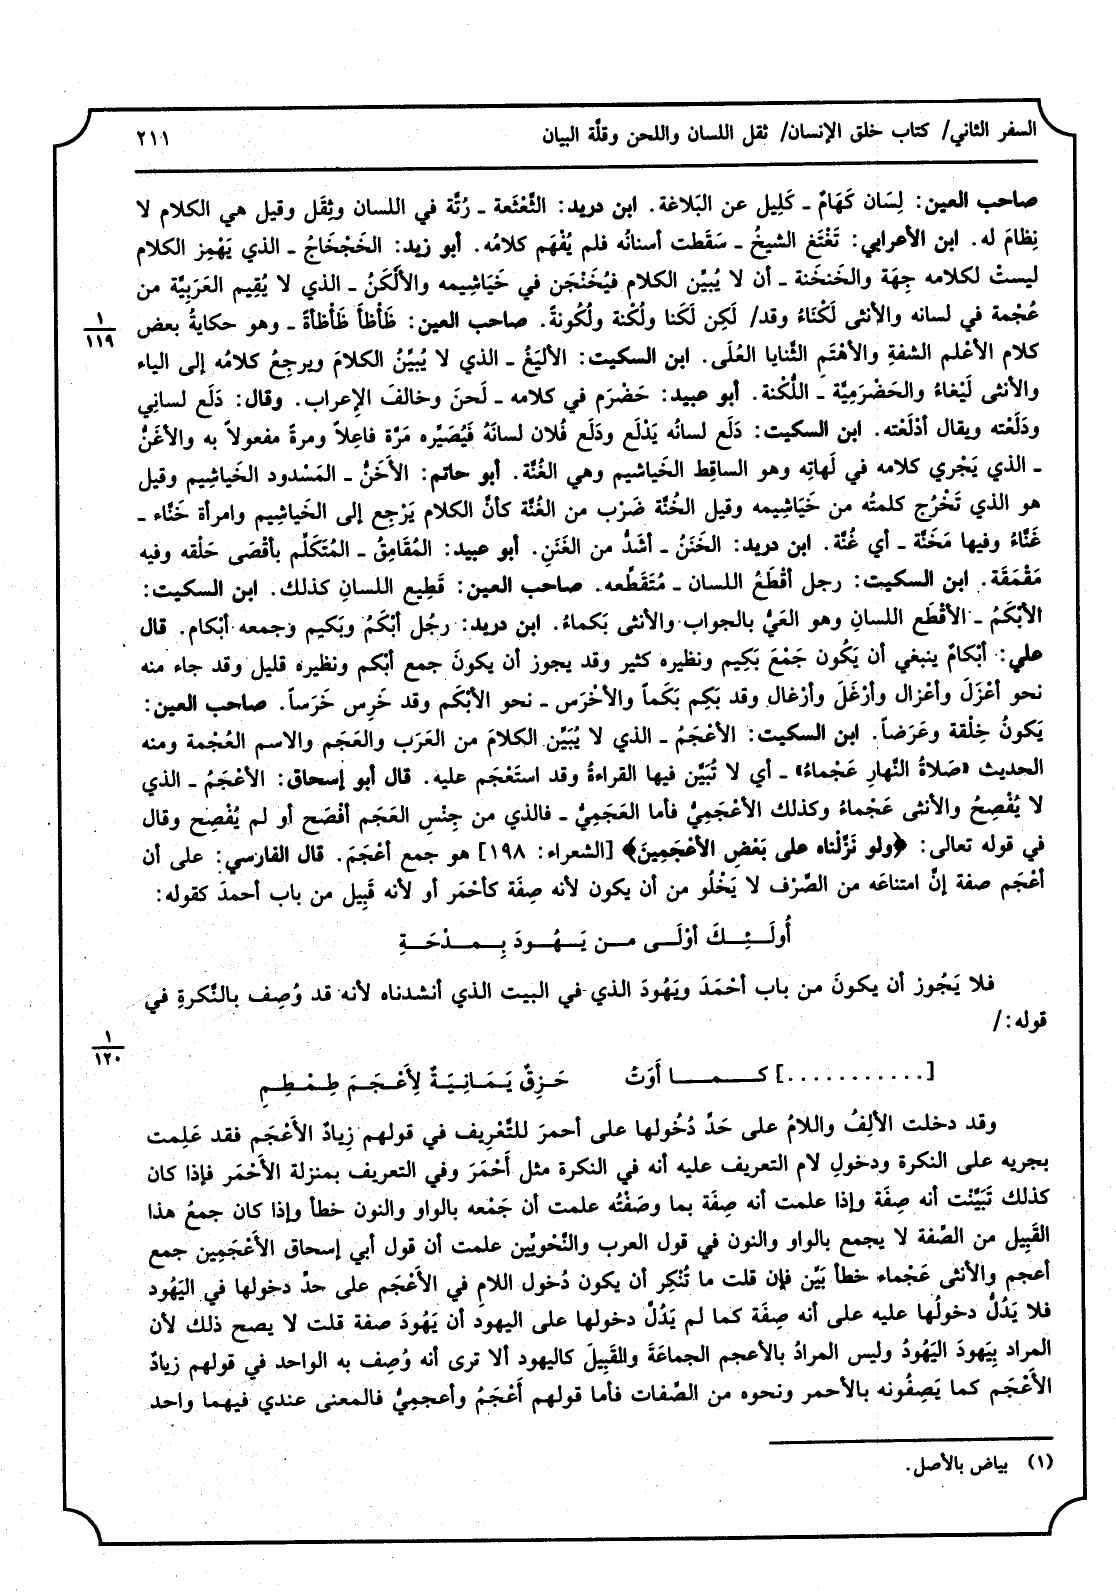 السفر الثاني/ كتاب خلق الإنسان/ ثقل اللسان واللحن وقلَّة البيان ٢١١
صاحب العين: لِسَان كَهَامٌ ـ كَلِيل عن البَلاغة. ابن دريد: الثَّعْثَعة ـ رُتَّة في اللسان وثِقَل وقيل هي الكلام لا
نِظامَ له. ابن الأعرابي: تَغْتَغ الشيخُ ـ سَقَطت أسنانُه فلم يُفْهَم كلامُه. أبو زيد: الخَجْخَاجُ ـ الذي يَهْمِز الكلام
ليستْ لكلامه جِهَة والخَنخَنة ـ أن لا يُبيِّن الكلام فيُخَنْخِن في خَيَاشيمه والألْكَنُ ـ الذي لا يُقِيم العَرَبِيَّة من
عُجْمة في لسانه والأنثى لَكْنَاءُ وقد/ لَكِن لَكَنا ولُكْنة ولُكُونةً. صاحب العين: ظَأْظَأَ ظَأْظأةً ـ وهو حكايةُ بعض
١
١١٩
كلام الأعْلم الشفةِ والأهْتَمِ الثَّنايا العُلَى. ابن السكيت: الأليَغُ ـ الذي لا يُبيِّنُ الكلامَ ويرجِعُ كلامُه إلى الياء
والأنثى لَيْغاءُ والحَضْرَمِيَّة ـ اللُّكْنة. أبو عبيد: حَضْرَم في كلامه ـ لَحنَ وخالفَ الإعراب. وقال: دَلَع لسانِي
ودَلَعْته ويقال أدْلَعْته. ابن السكيت: دَلَع لسانُه يَدْلَع ودَلَع فُلان لسانَهُ فَيُصَيِّره مَرَّة فاعِلاً ومرةً مفعولاً به والأغَنُّ
ـ الذي يَجْري كلامه في لَهاتِه وهو الساقِط الخَياشيم وهي الغُنَّة. أبو حاتم: الأخَنُّ ـ المَسْدود الخَياشِيم وقيل
هو الذي تَخْرُج كلمتُه من خَيَاشِيمه وقيل الخُنَّة ضَرْب من الغُنَّة كأنَّ الكلام يَرْجِع إلى الخَياشِيم وامرأة خَنَّاء ـ
غَنَّاءُ وفيها مَخَنَّة ـ أي غُنَّة. ابن دريد: الخَنَنُ ـ أشَدُّ من الغَنَنِ. أبو عبيد: المُقَامِقُ ـ المُتَكَلِّم بأقْصَى حَلْقه وفيه
مَقْمَقَة. ابن السكيت: رجل أقْطَعُ اللسان ـ مُتَقَطِّعه. صاحب العين: قَطِيع اللسانِ كذلك. ابن السكيت:
الأبْكَمُ ـ الأقْطَع اللسانِ وهو العَيُّ بالجواب والأنثى بَكماءُ. ابن دريد: رجُل أبْكَمُ وبَكيم وجمعه أبْكام. قال
علي: أبْكامٌ ينبغي أن يَكُون جَمْعَ بَكِيم ونظيره كثير وقد يجوز أن يكونَ جمع أبْكم ونظيره قليل وقد جاء منه
نحو أعْزَلَ وأعْزال وأرْغَلَ وأرْغال وقد بَكِم بَكَماً والأخْرَس ـ نحو الأبْكَم وقد خَرِس خَرَساً. صاحب العين:
يَكونُ خِلْقة وعَرَضاً. ابن السكيت: الأعْجَمُ ـ الذي لا يُبَيِّن الكلامَ من العَرَب والعَجَم والاسم العُجْمة ومنه
الحديث «صَلاةُ النَّهارِ عَجْماءُ» ـ أي لا تُبَيَّن فيها القراءةُ وقد استَعْجَم عليه. قال أبو إسحاق: الأعْجَمُ ـ الذي
لا يُفْصِحُ والأنثى عَجْماءُ وكذلك الأعْجَمِيُّ فأما العَجَمِيُّ ـ فالذي من جِنْسِ العَجَم أفْصَح أو لم يُفْصِح وقال
في قوله تعالى: ﴿ولو نَزَّلْناه على بَعْضِ الأعْجَمِينَ﴾ [الشعراء: ١٩٨] هو جمع أعْجَمَ. قال الفارسي: على أن
أعْجَم صفة إنَّ امتناعَه من الصَّرْف لا يَخْلُو من أن يكون لأنه صِفَة كأحْمَر أو لأنه قَبِيل من باب أحمدَ كقوله:
أُولَـئِـكَ أوْلَـى مـن يَـهُـودَ بِـمـدْحَـةٍ
فلا يَجُوز أن يكونَ من باب أحْمَدَ ويَهُودَ الذي في البيت الذي أنشدناه لأنه قد وُصِف بالنَّكرةِ في
قوله:/
١
١٢٠
[...........] كـمـا أَوَتْ حَـزِقٌ يَـمَـانِـيَـةٌ لِأَعْـجَـمَ طِـمْـطِـمِ
وقد دخلت الألِفُ واللامُ على حَدِّ دُخُولها على أحمرَ للتَّعْرِيف في قولهم زِيادٌ الأعْجَم فقد عَلِمت
بجريه على النكرة ودخولِ لام التعريف عليه أنه في النكرة مثل أَحْمَرَ وفي التعريف بمنزلة الأحْمَر فإذا كان
كذلك تَبَيَّنْت أنه صِفَة وإذا علمت أنه صِفَة بما وصَفْتُه علمت أن جَمْعه بالواو والنون خطأ وإذا كان جمعُ هذا
القَبِيل من الصِّفة لا يجمع بالواو والنون في قول العرب والنَّحْويِّين علمت أن قول أبي إسحاق الأعْجَمِين جمع
أعجم والأنثى عَجْماء خطأ بَيِّن فإن قلت ما تُنْكِر أن يكون دُخول اللامِ في الأعْجَم على حدِّ دخولها في اليَهُود
فلا يَدُلُّ دخولُها عليه على أنه صِفَة كما لم يَدُلَّ دخولها على اليهود أن يَهُودَ صفة قلت لا يصح ذلك لأن
المراد بِيَهودَ اليَهُودُ وليس المرادُ بالأعجم الجماعَةَ والقَبِيلَ كاليهود ألا ترى أنه وُصِف به الواحد في قولهم زيادٌ
الأعْجَم كما يَصِفُونه بالأحمر ونحوه من الصِّفات فأما قولهم أَعْجَمُ وأعجمِيٌّ فالمعنى عندي فيهما واحد
(١) بياض بالأصل.